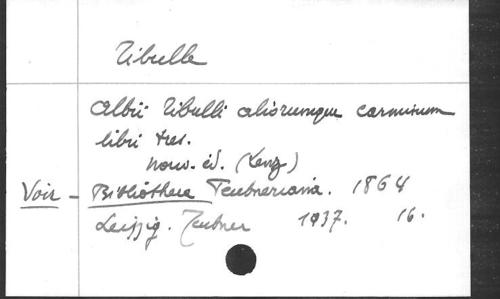 Tibulle
Albii Tibulli aliorumque carminum
libri tres.
nouv. éd. (Lenz)
Voir - Bibliotheca Teubneriana. 1864
Leipzig. Teubner 1937. 16.